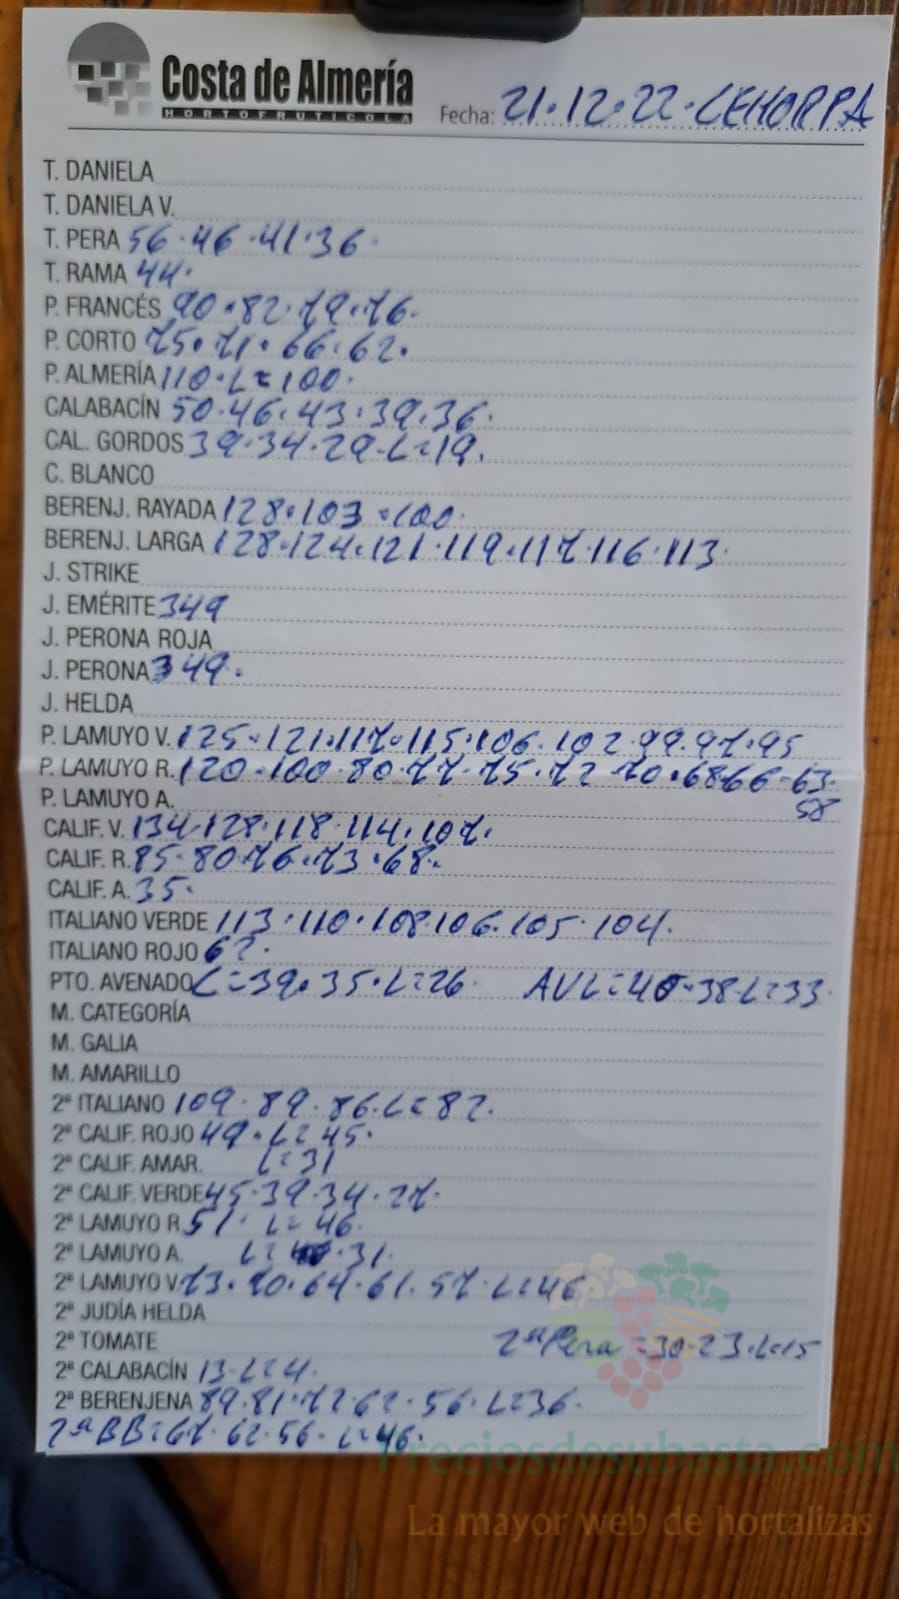 Costa de Almería
HORTOFRUTICOLA
Fecha: 21.12.22. CEHORPA
T. DANIELA
T. DANIELA V.
T. PERA 56.46.41.36.
T. RAMA 44.
P. FRANCÉS 90.82.79.76.
P. CORTO 75.71.66.62.
P. ALMERÍA 110.L=100.
CALABACÍN 50.46.43.39.36.
CAL. GORDOS 39.34.29-L=19.
C. BLANCO
BERENJ. RAYADA 128.103.100.
BERENJ. LARGA 128.124.121.119.117.116.113.
J. STRIKE
J. EMÉRITE 349
J. PERONA ROJA
J. PERONA 349.
J. HELDA
P. LAMUYO V. 125.121.117.115.106.102.99.97.95
P. LAMUYO R. 120.100.80.77.75.72.70.68.66-63.
58
P. LAMUYO A.
CALIF. V. 134.128.118.114.107.
CALIF. R. 85.80.76.73.68.
CALIF. A. 35.
ITALIANO VERDE 113.110.108.106.105.104.
ITALIANO ROJO 62.
PTO. AVENADO L=39.35.L=26. AVL=40-38-L=33.
M. CATEGORÍA
M. GALIA
M. AMARILLO
2ª ITALIANO 109.89.86.L=82.
2ª CALIF. ROJO 49.L=45.
2ª CALIF. AMAR. L=31
2ª CALIF. VERDE 45.39.34.27.
2ª LAMUYO R. 51. L=46.
2ª LAMUYO A. L= 31.
2ª LAMUYO V. 73.70.64.61.57.L=46
2ª JUDÍA HELDA
2ª TOMATE 2ª Pera=30.23.L=15
2ª CALABACÍN 13-L=4.
2ª BERENJENA 89.81.72.62.56.L=36.
2ª BB=67.62.56.L=46.
Preciosdesubasta.com
La mayor web de hortalizas